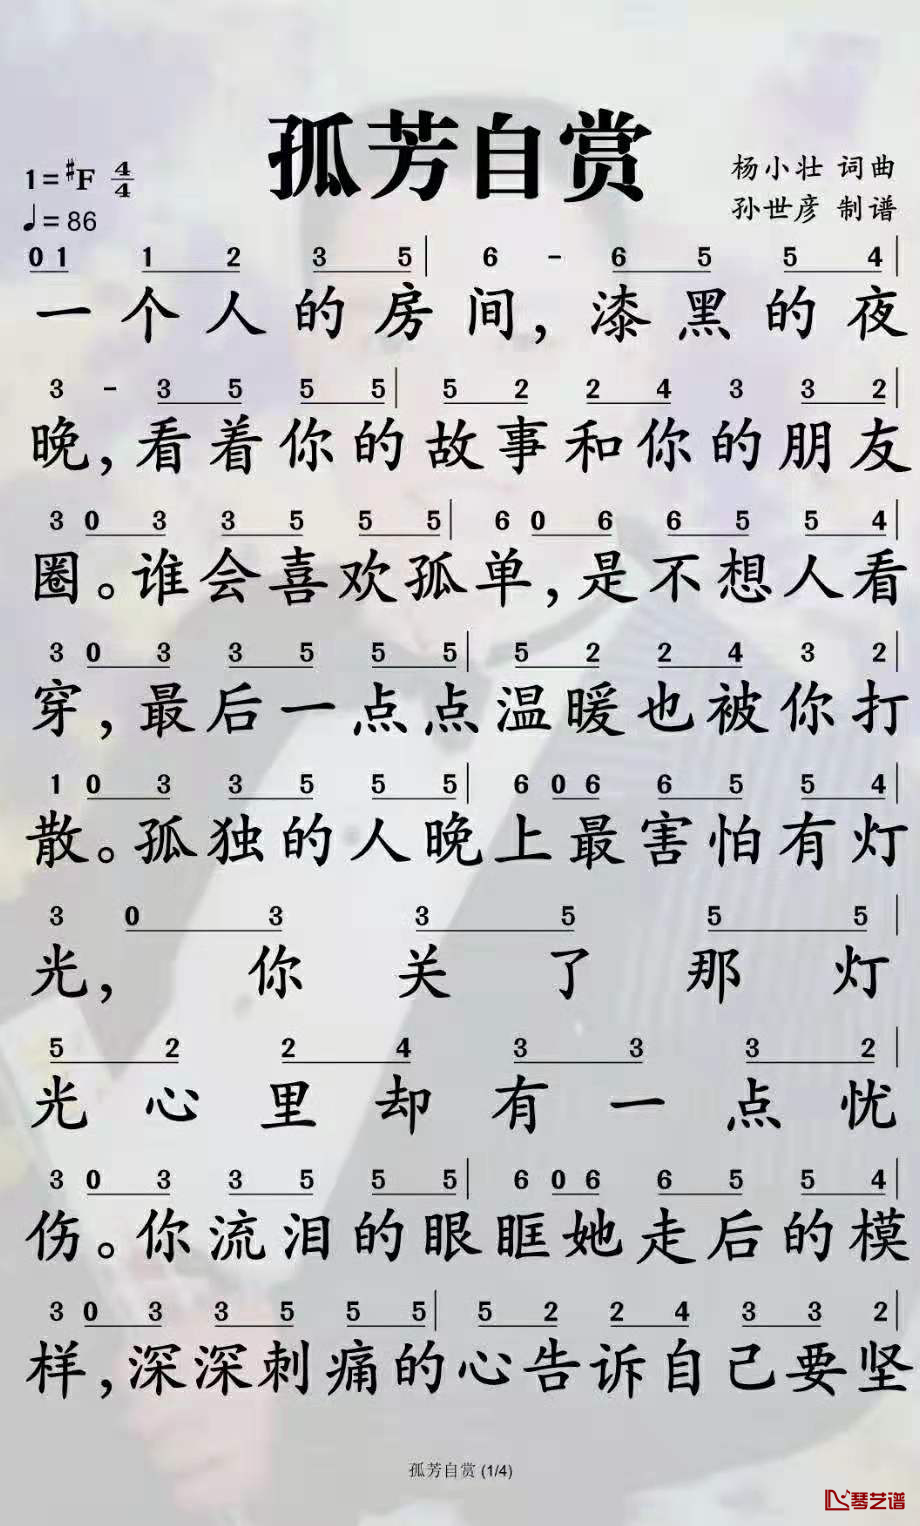 孤芳自赏
1=#F 4/4
♩=86
杨小壮 词曲
孙世彦 制谱
0 1 1 2 3 5 | 6 - 6 5 5 4 |
一个人的房间,漆黑的夜
3 - 3 5 5 5 | 5 2 2 4 3 3 2 |
晚,看着你的故事和你的朋友
3 0 3 3 5 5 5 | 6 0 6 6 5 5 4 |
圈。谁会喜欢孤单,是不想人看
3 0 3 3 5 5 5 | 5 2 2 4 3 2 |
穿,最后一点点温暖也被你打
1 0 3 3 5 5 5 | 6 0 6 6 5 5 4 |
散。孤独的人晚上最害怕有灯
3 0 3 3 5 5 5 |
光,你关了那灯
5 2 2 4 3 3 3 2 |
光心里却有一点忧
3 0 3 3 5 5 5 | 6 0 6 6 5 5 4 |
伤。你流泪的眼眶她走后的模
3 0 3 3 5 5 5 | 5 2 2 4 3 3 2 |
样,深深刺痛的心告诉自己要坚
孤芳自赏 (1/4)
琴艺谱